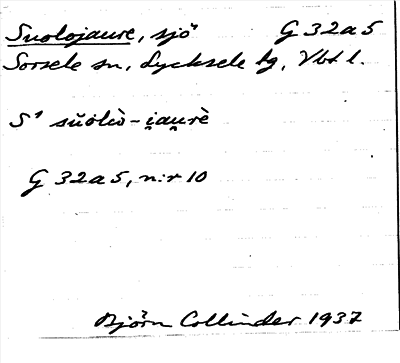 Suolojaure, sjö G 32a5
Sorsele sn, Lycksele lg, Vbt l.
G 32a5, n:r 10
Björn Collinder 1937